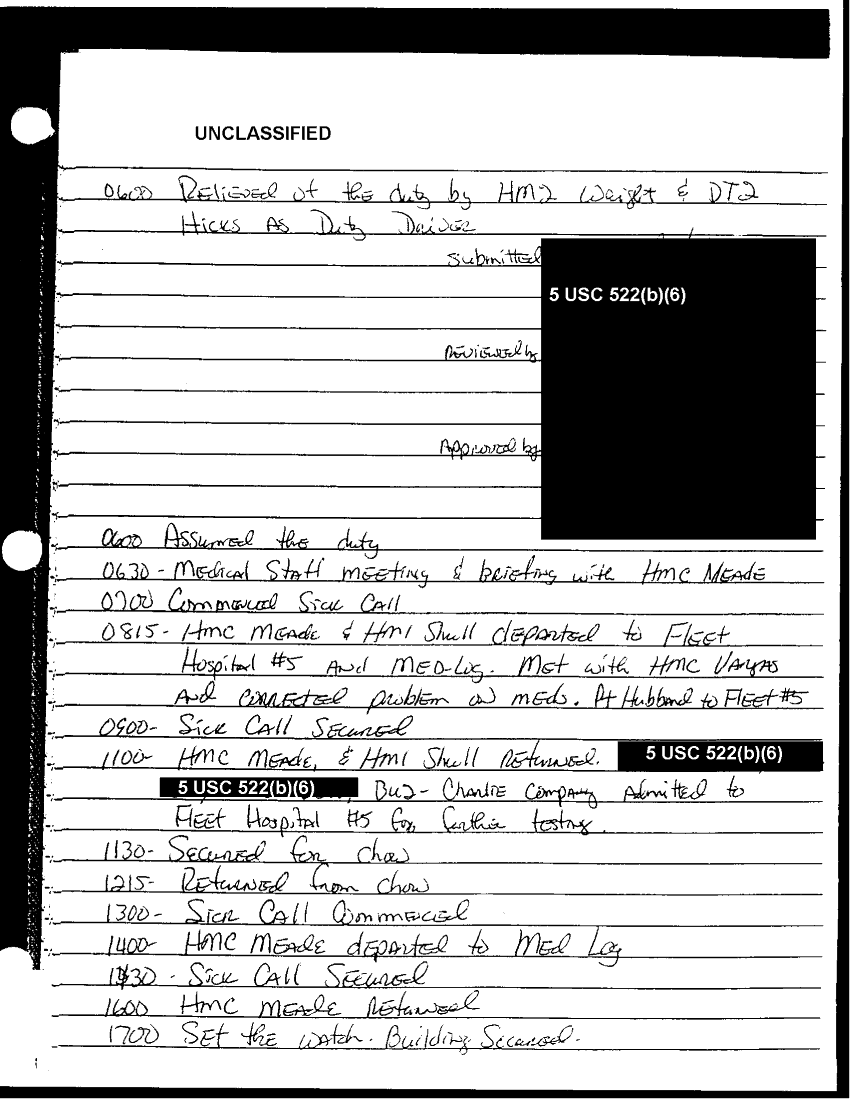 UNCLASSIFIED
0600 Relieved of the duty by HM2 Waight & DT2
Hicks As Duty Driver
Submitted
5 USC 522(b)(6)
Reviewed by
Approved by
0600 Assumed the duty
0630 - Medical Staff meeting & briefing with HMC MEADE
0700 Commenced Sick CAll
0815 - HMC MEADE & HM1 Shull departed to FLEET
Hospital #5 And MED-Log. Met with HMC VARGAS
And corrected problem on meds. Pt Hubband to FLEET #5
0900 - Sick CAll Secured
1100 - HMC MEADE, & HM1 Shull Returned. 5 USC 522(b)(6)
5 USC 522(b)(6) BU2 - Charlie Company Admitted to
FLEET Hospital #5 for further testing.
1130 - Secured for chow
1215 - Returned from chow
1300 - Sick CAll Commenced
1400 - HMC MEADE departed to Med Log
1430 - Sick CAll Secured
1600 HMC MEADE Returned
1700 SET the watch. Building Secured.